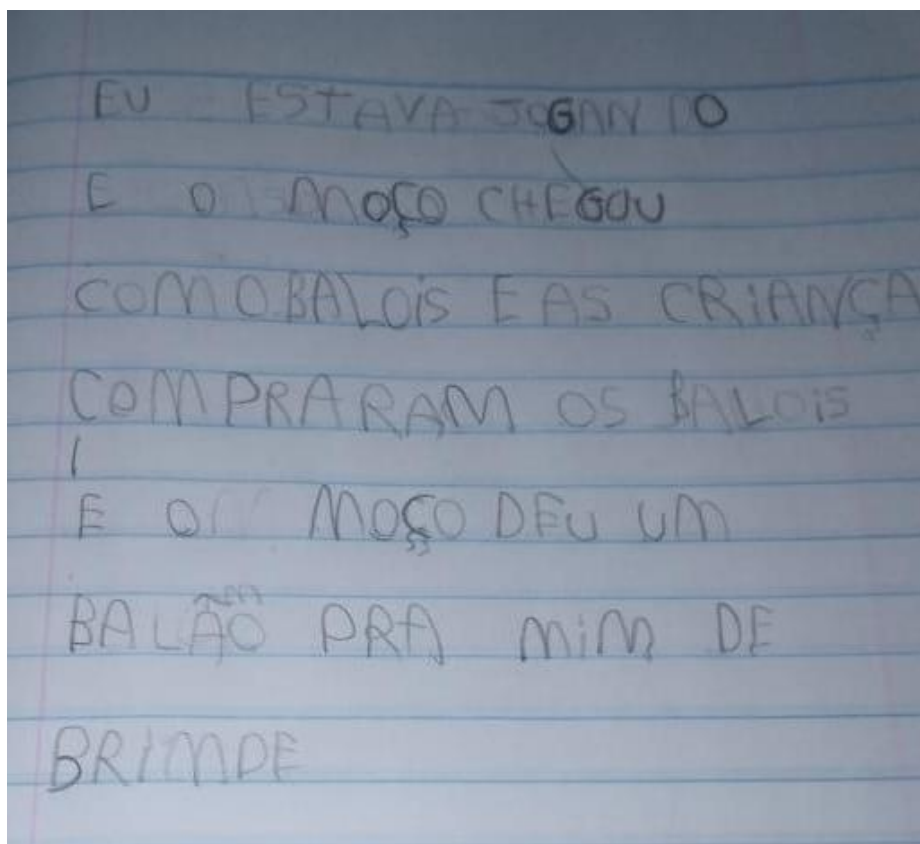 EU ESTAVA JOGANDO
E O MOÇO CHEGOU
COM O BALOIS E AS CRIANÇA
COMPRARAM OS BALOIS
E O MOÇO DEU UM
BALÃO PRA MIM DE
BRIMDE